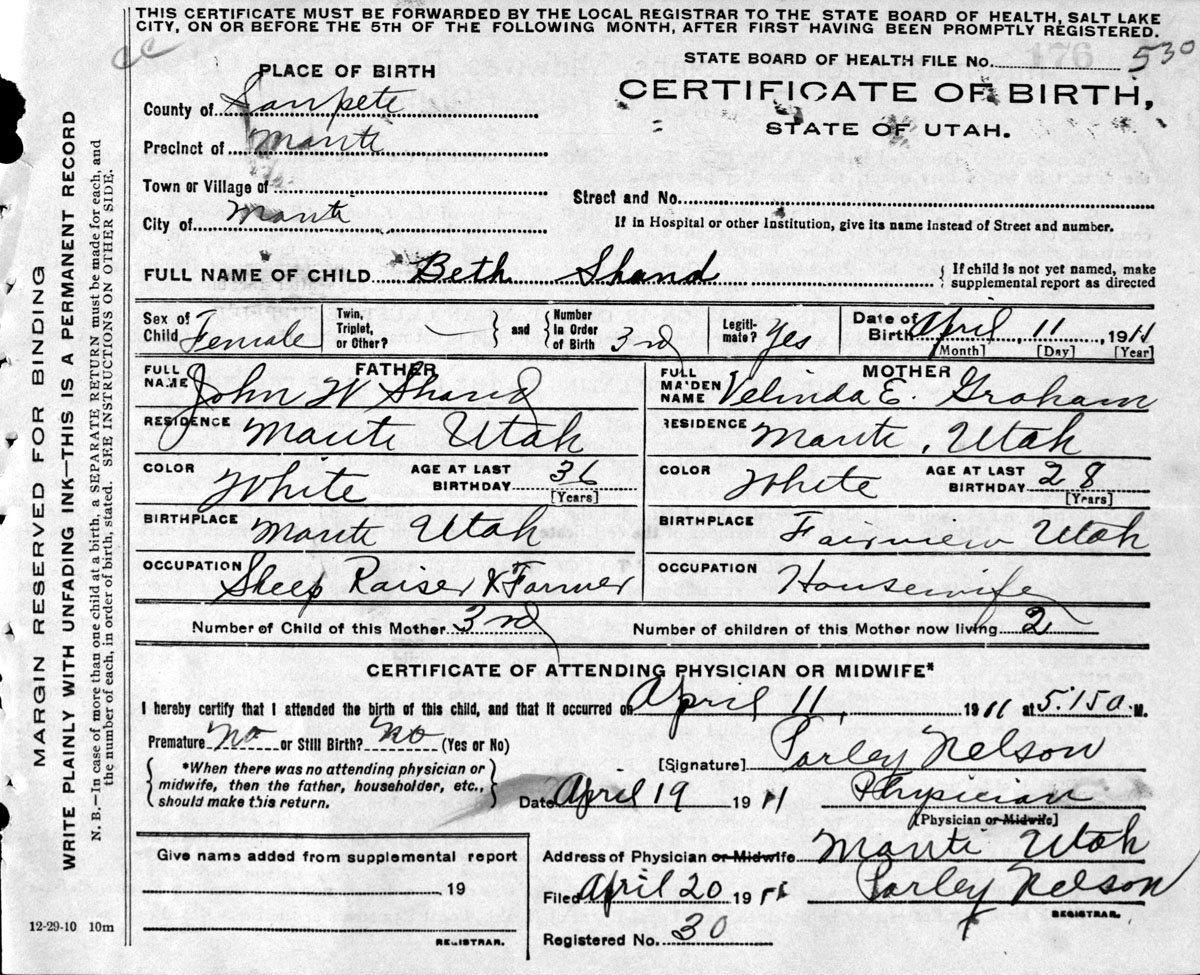 THIS CERTIFICATE MUST BE FORWARDED BY THE LOCAL REGISTRAR TO THE STATE BOARD OF HEALTH, SALT LAKE
CITY, ON OR BEFORE THE 5TH OF THE FOLLOWING MONTH, AFTER FIRST HAVING BEEN PROMPTLY REGISTERED.
STATE BOARD OF HEALTH FILE No. 176 530
PLACE OF BIRTH
CERTIFICATE OF BIRTH,
STATE OF UTAH.
County of Sanpete
Precinct of Manti
Town or Village of
Street and No.
City of Manti
If in Hospital or other Institution, give its name instead of Street and number.
FULL NAME OF CHILD Beth Shand
If child is not yet named, make
supplemental report as directed
Sex of Child Female
Twin, Triplet, or Other? —
and Number in Order of Birth 3rd
Legitimate? Yes
Date of Birth April 11 1911
[Month] [Day] [Year]
FATHER
FULL NAME John W Shand
MOTHER
FULL MAIDEN NAME Velinda E. Graham
RESIDENCE Manti Utah
RESIDENCE Manti, Utah
COLOR White AGE AT LAST BIRTHDAY 36 [Years]
COLOR White AGE AT LAST BIRTHDAY 28 [Years]
BIRTHPLACE Manti Utah
BIRTHPLACE Fairview Utah
OCCUPATION Sheep Raiser & Farmer
OCCUPATION Housewife
Number of Child of this Mother 3rd
Number of children of this Mother now living 2
CERTIFICATE OF ATTENDING PHYSICIAN OR MIDWIFE*
I hereby certify that I attended the birth of this child, and that it occurred on April 11, 1911 at 5:15 a. M.
Premature No or Still Birth? No (Yes or No)
[Signature] Parley Nelson
*When there was no attending physician or
midwife, then the father, householder, etc.,
should make this return.
Date April 19 1911
Physician
[Physician or Midwife]
Give name added from supplemental report
19
REGISTRAR.
Address of Physician or Midwife Manti Utah
Filed April 20 1911 Parley Nelson
REGISTRAR.
Registered No. 30
12-29-10 10m
MARGIN RESERVED FOR BINDING
WRITE PLAINLY WITH UNFADING INK—THIS IS A PERMANENT RECORD
N. B.—In case of more than one child at a birth, a SEPARATE RETURN must be made for each, and
the number of each, in order of birth, stated. SEE INSTRUCTIONS ON OTHER SIDE.